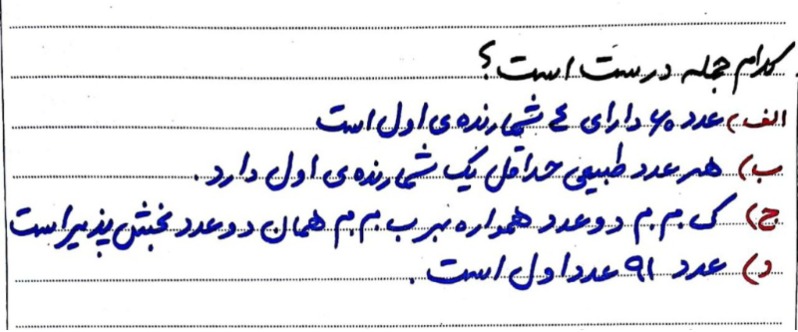 کدام جمله درست است؟
الف) عدد ۶۰ دارای ٤ شمارنده‌ی اول است
ب) هر عدد طبیعی حداقل یک شمارنده‌ی اول دارد.
ج) ک.م.م دو عدد همواره بر ب.م.م همان دو عدد بخش پذیر است
د) عدد ۹۱ عدد اول است.